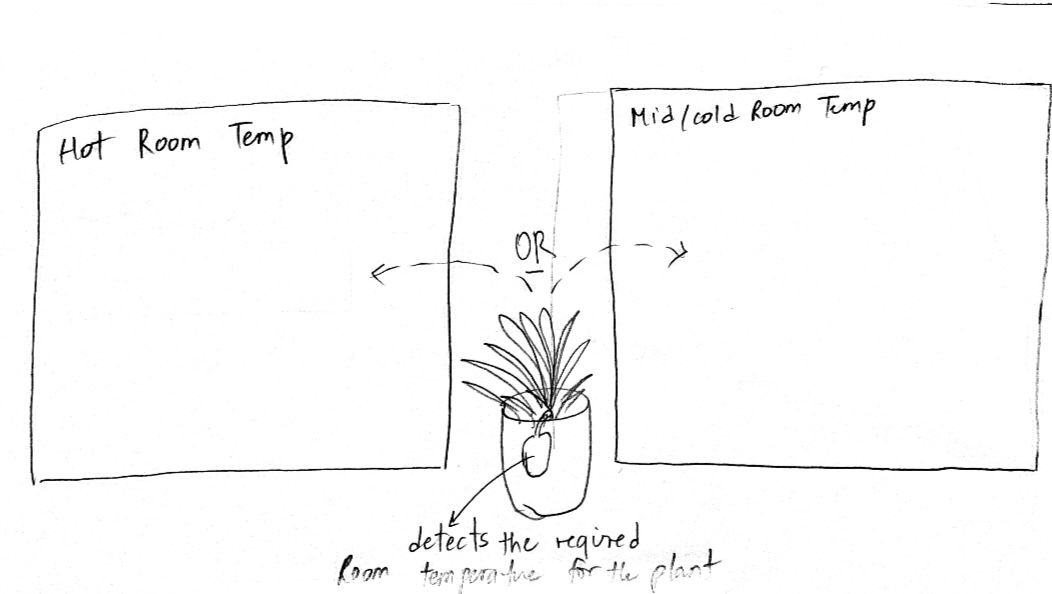 Hot Room Temp
Mid/cold Room Temp
OR
detects the required
Room temperature for the plant